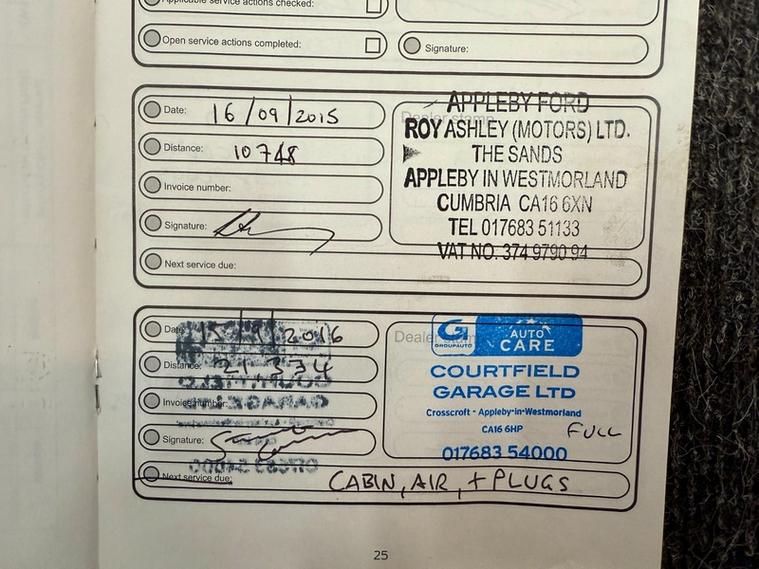 Applicable service actions checked:
Open service actions completed:
Signature:
Date: 16/09/2015
Distance: 10748
Invoice number:
Signature:
Next service due:
Dealer stamp
APPLEBY FORD
ROY ASHLEY (MOTORS) LTD.
THE SANDS
APPLEBY IN WESTMORLAND
CUMBRIA CA16 6XN
TEL 017683 51133
VAT NO. 374 9790 94
Date: 15/9/2016
Distance: 21,334
Invoice number:
Signature:
Next service due: CABIN, AIR, + PLUGS
Dealer stamp
G AUTO
GROUPAUTO CARE
COURTFIELD
GARAGE LTD
Crosscroft · Appleby-in-Westmorland
CA16 6HP
FULL
017683 54000
25